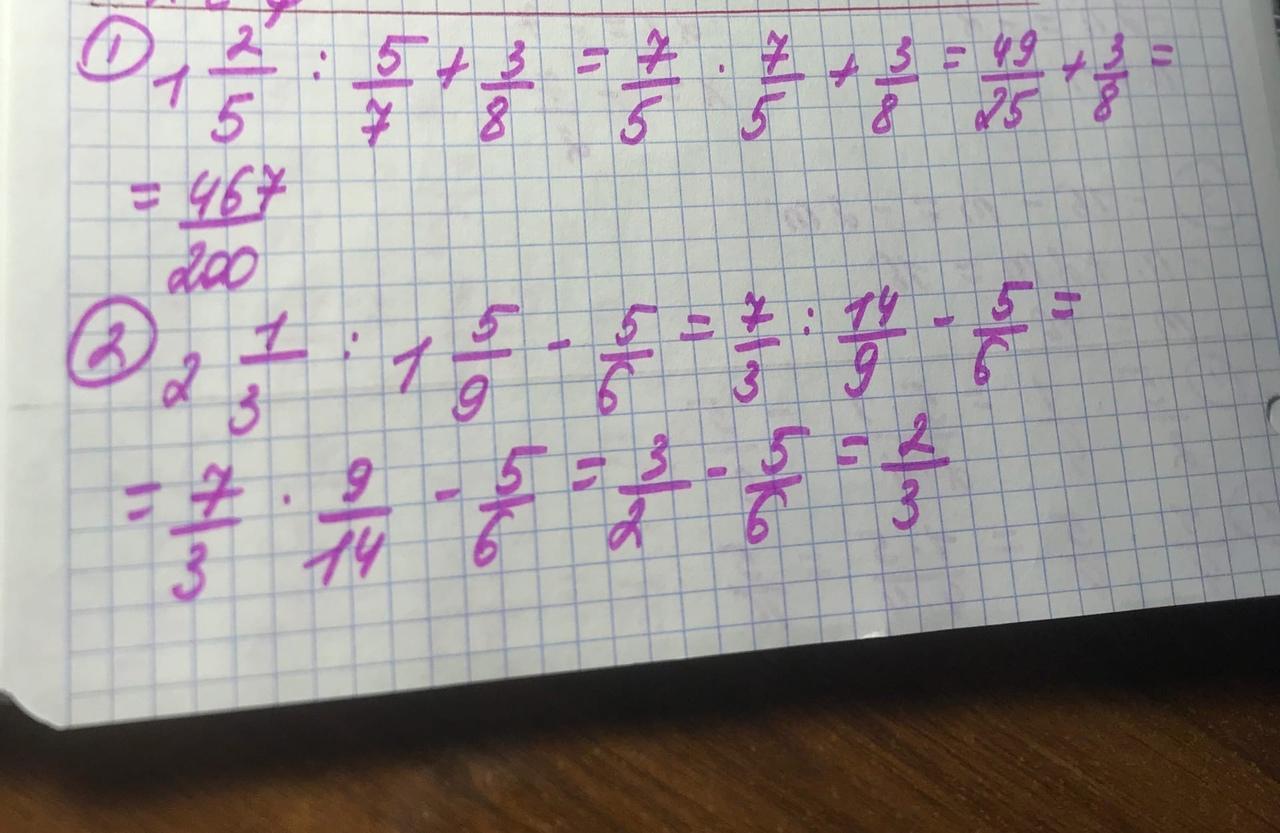 ① 1 2/5 : 5/7 + 3/8 = 7/5 · 7/5 + 3/8 = 49/25 + 3/8 =
= 467/200
② 2 1/3 : 1 5/9 - 5/6 = 7/3 : 14/9 - 5/6 =
= 7/3 · 9/14 - 5/6 = 3/2 - 5/6 = 2/3